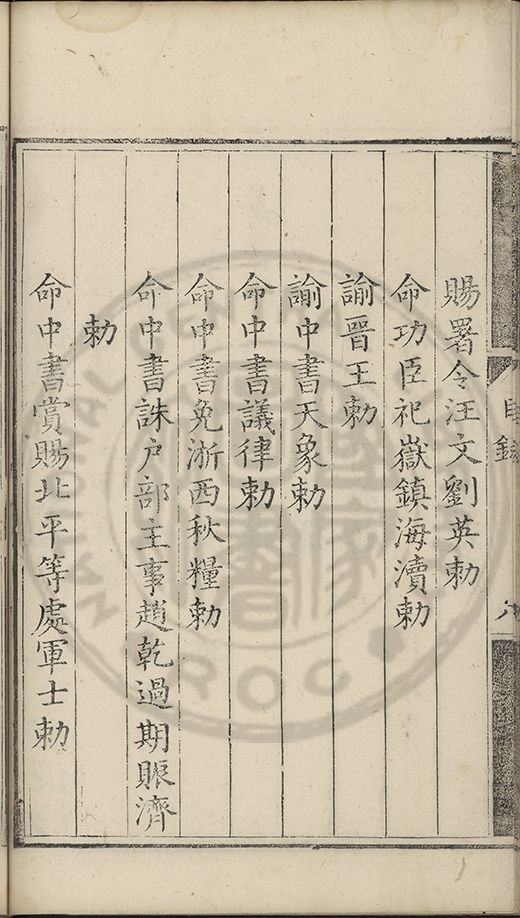 目錄
六
賜署令汪文劉英勅
命功臣祀嶽鎮海瀆勅
諭晉王勅
諭中書天象勅
命中書議律勅
命中書免浙西秋糧勅
命中書誅户部主事趙乾過期賑濟
勅
命中書賞賜北平等處軍士勅